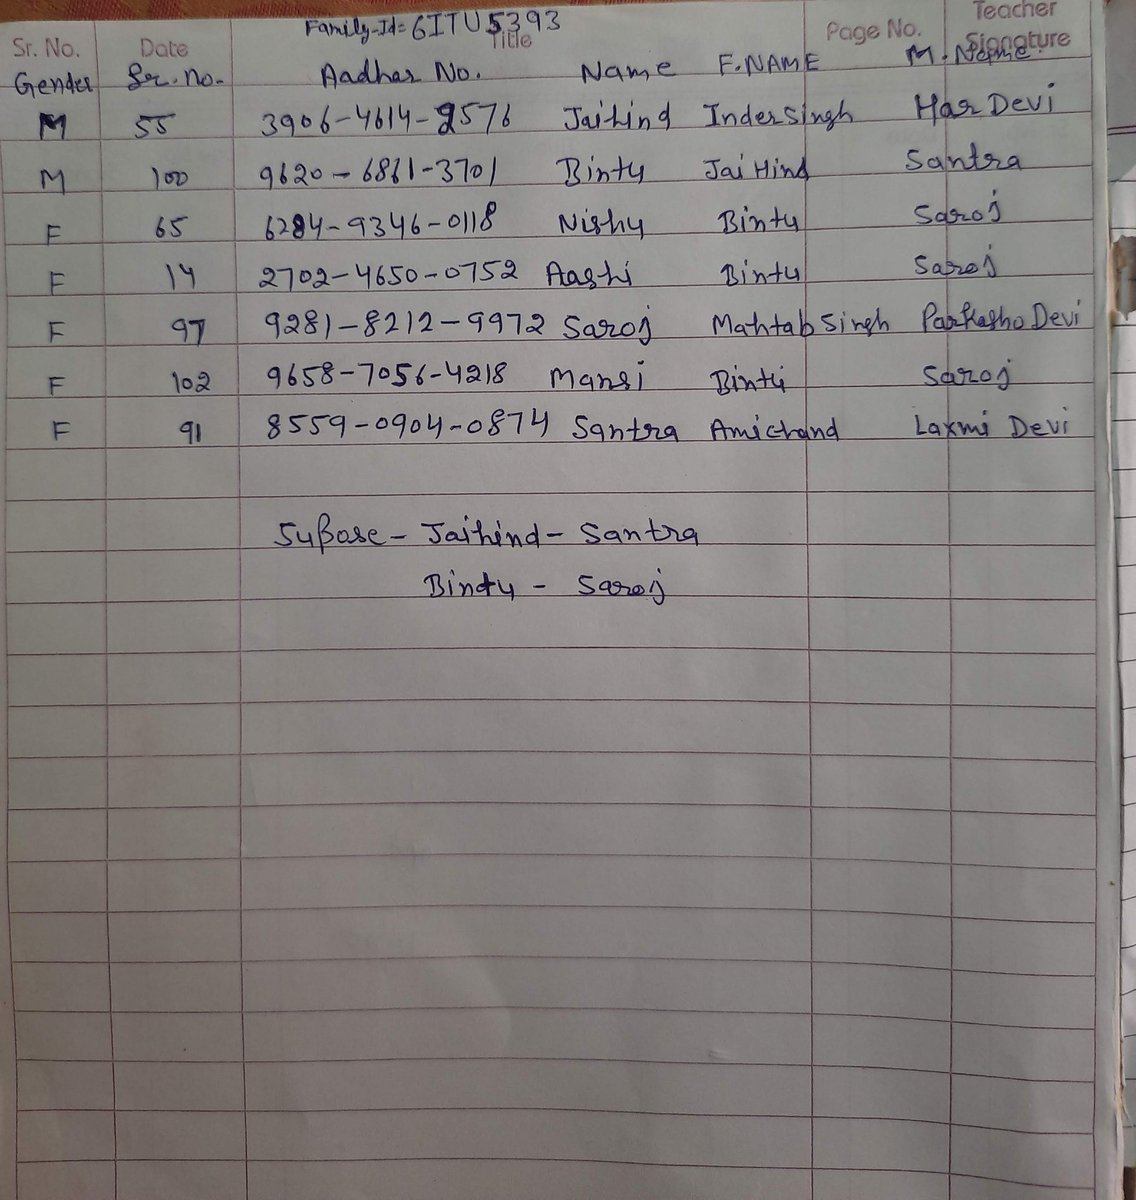 Family-Id= 6ITU5393
Sr. No. Date Title Page No. Teacher Signature
Gender Sr. no. Aadhar No. Name F.NAME M. Name
M 55 3906-4614-2576 Jaihind Indersingh Har Devi
M 100 9620-6861-3701 Bintu Jai Hind Santra
F 65 6284-9346-0118 Nishu Bintu Saroj
F 14 2702-4650-0752 Aashi Bintu Saroj
F 97 9281-8212-9972 Saroj Mahtab Singh Parkasho Devi
F 102 9658-7056-4218 Mansi Bintu Saroj
F 91 8559-0904-0874 Santra Amichand Laxmi Devi
Supose - Jaihind - Santra
Bintu - Saroj